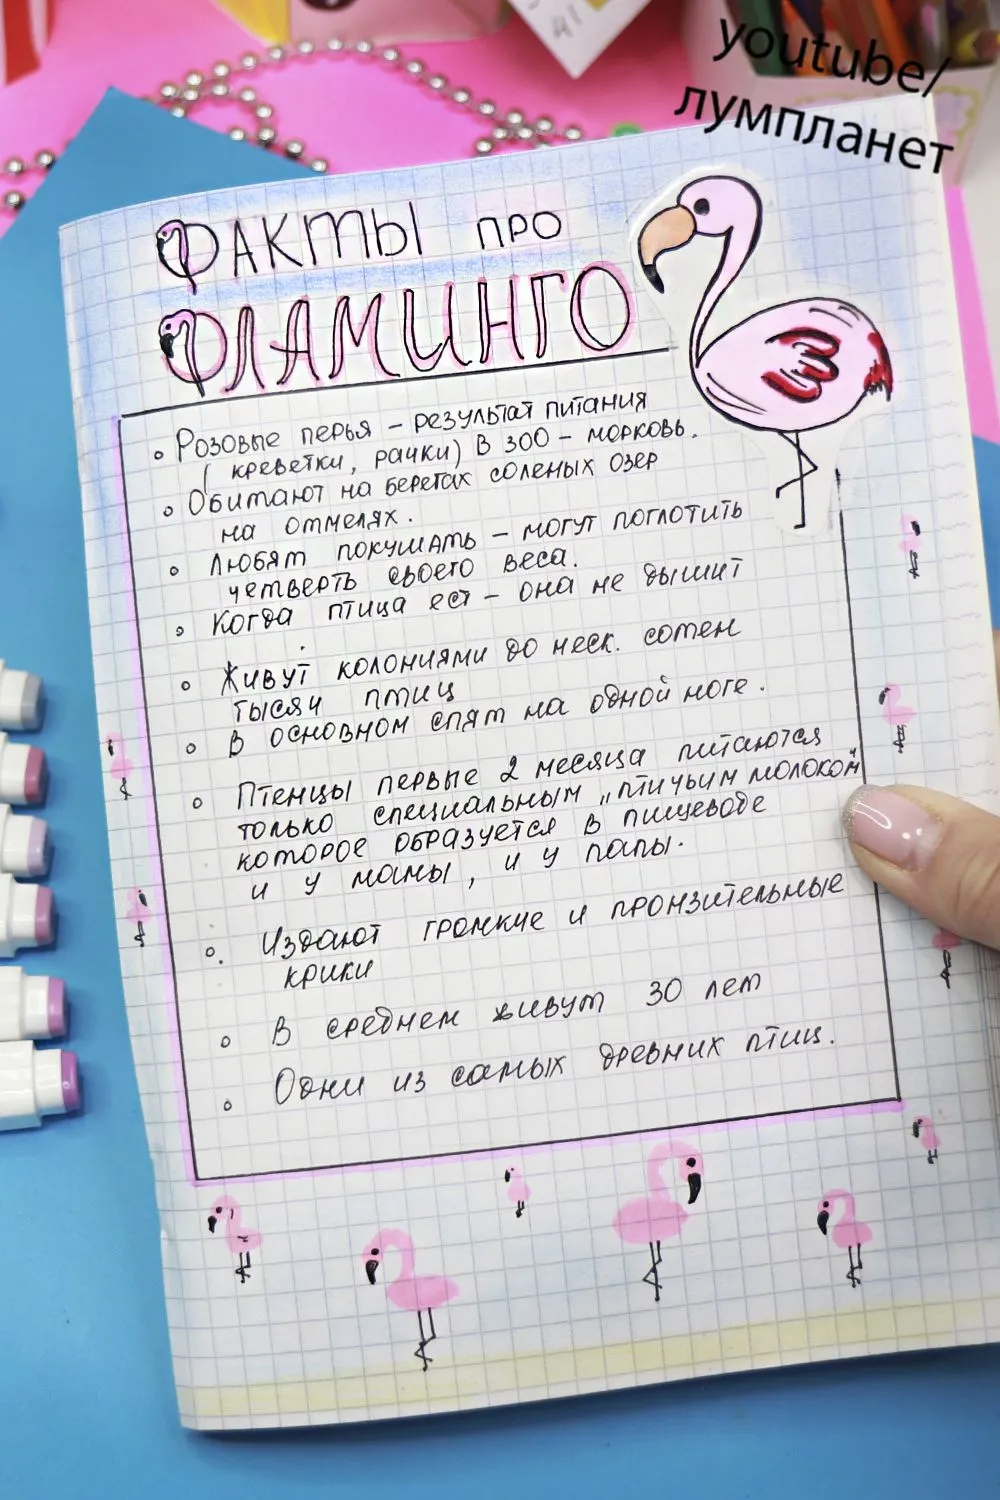 youtube/
лумпланет
ФАКТЫ ПРО
ФЛАМИНГО
Розовые перья – результат питания
( креветки, рачки) В ЗОО – морковь.
Обитают на берегах соленых озер
на отмелях.
Любят покушать – могут поглотить
четверть своего веса.
Когда птица ест – она не дышит
Живут колониями до неск. сотен
тысяч птиц
В основном спят на одной ноге.
Птенцы первые 2 месяца питаются
только специальным „птичьим молоком"
которое образуется в пищеводе
и у мамы, и у папы.
Издают громкие и пронзительные
крики
В среднем живут 30 лет
Одни из самых древних птиц.